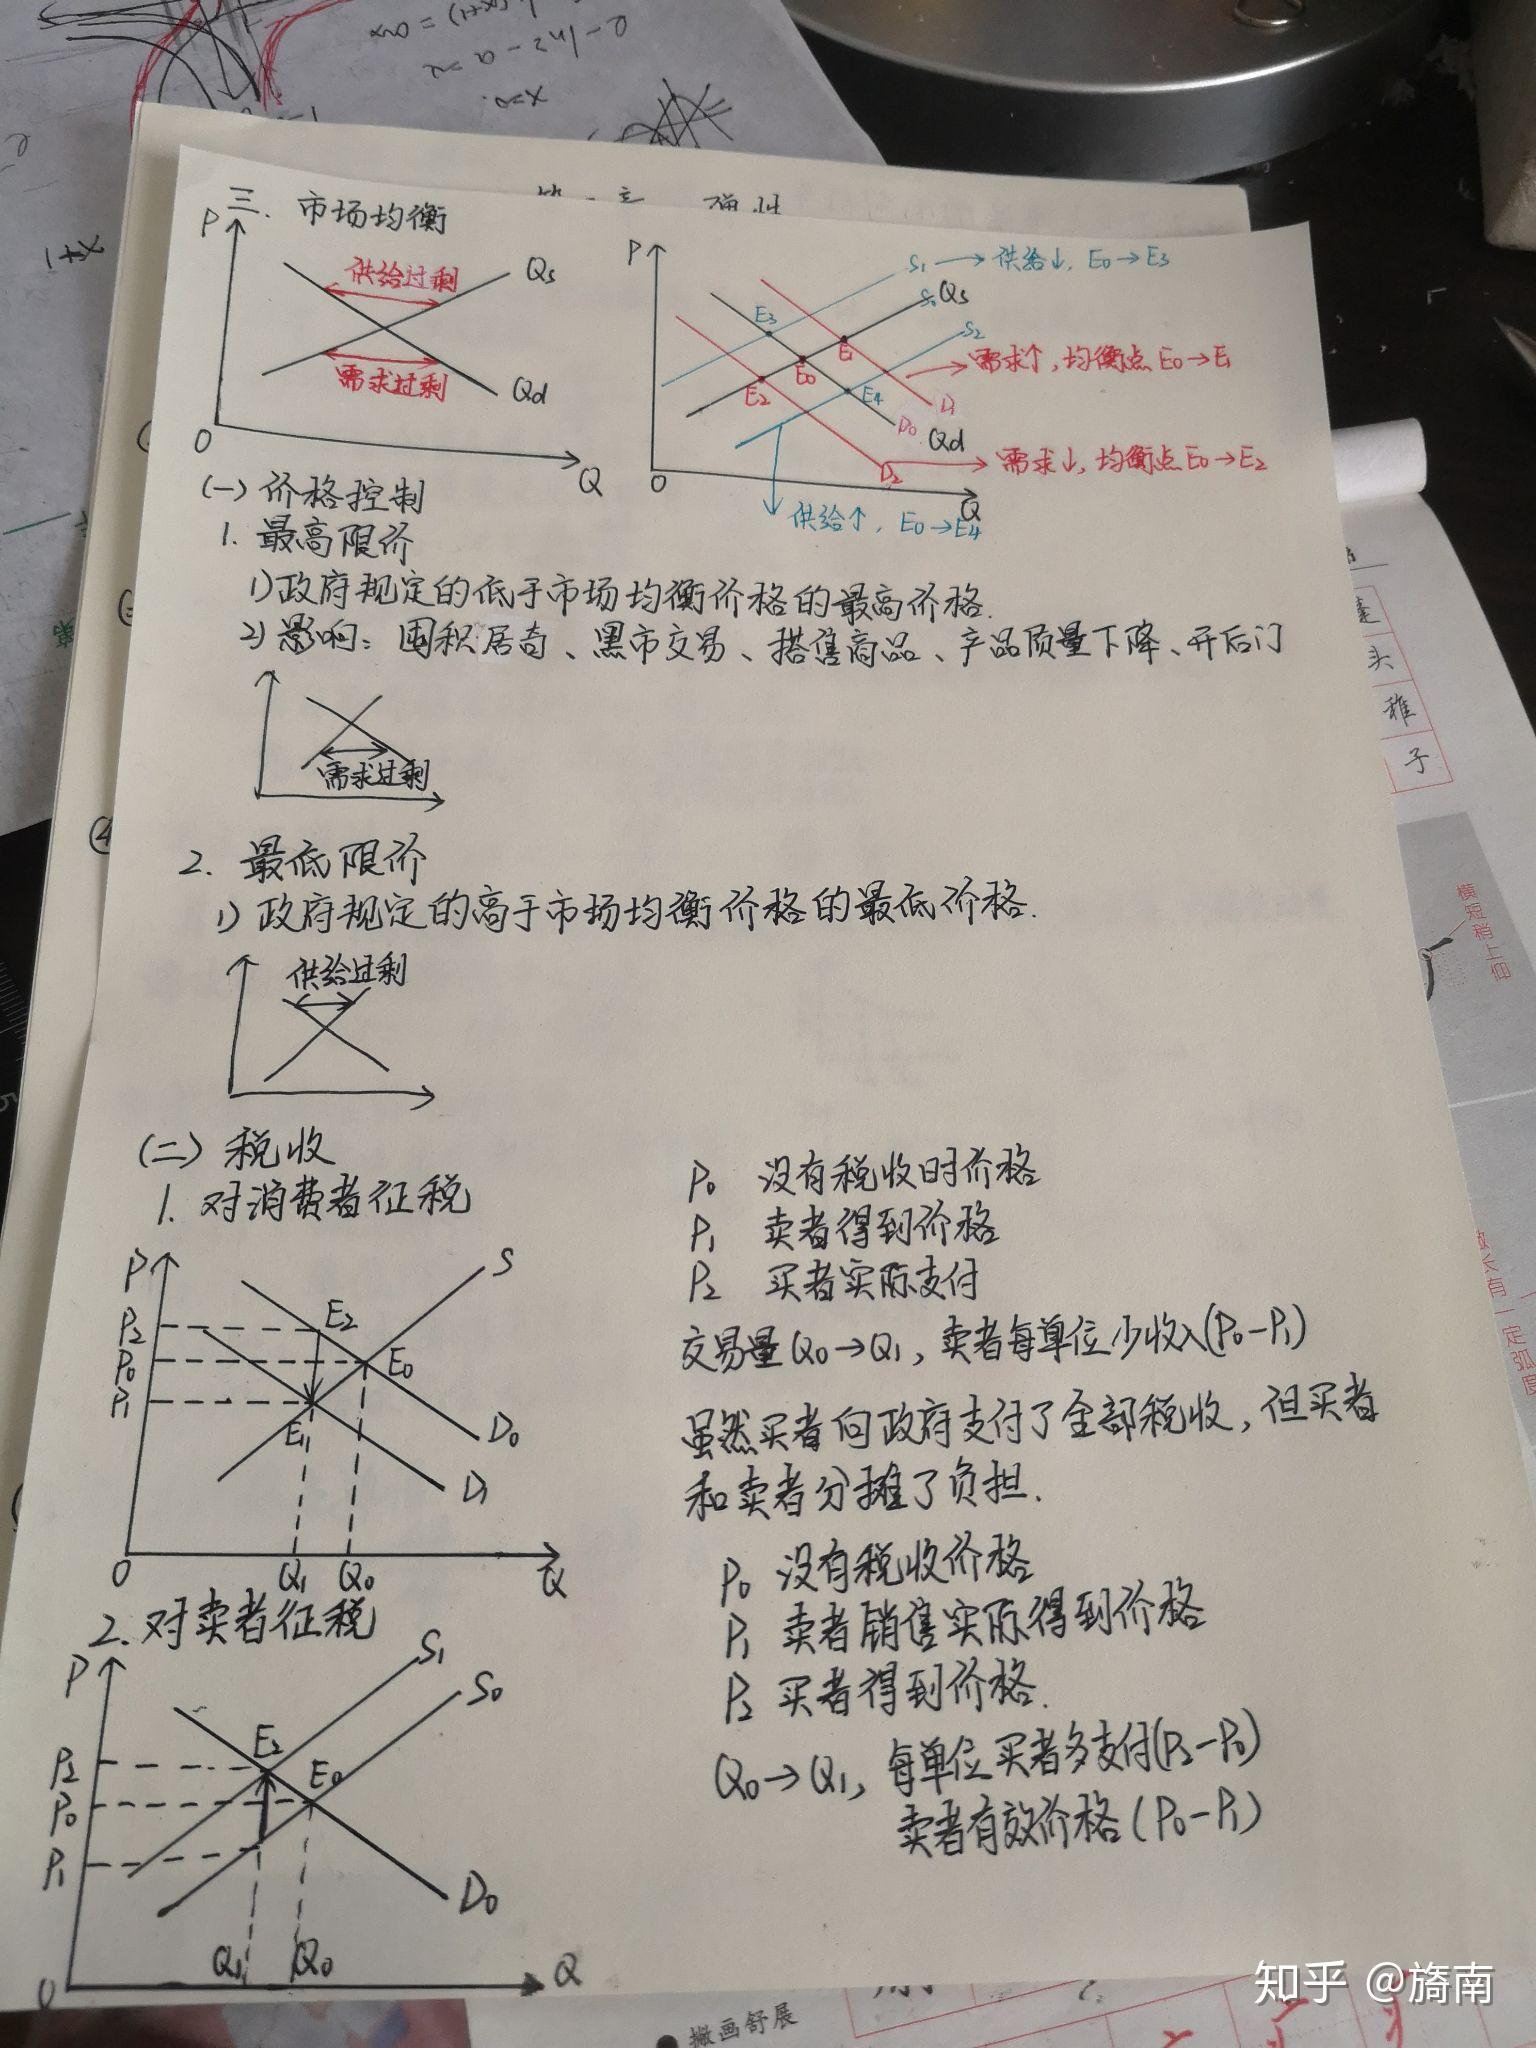 三. 市场均衡
P
供给过剩
Qs
需求过剩
Qd
O
Q
P
S₁ → 供给↓, E₀→E₃
S₀ Qs
S₂
E₃
E₁
E₀
E₂
E₄
需求↑, 均衡点 E₀→E₁
D₁
D₀ Qd
D₂
需求↓, 均衡点 E₀→E₂
O
Q
供给↑, E₀→E₄
(一) 价格控制
1. 最高限价
1) 政府规定的低于市场均衡价格的最高价格.
2) 影响: 囤积居奇、黑市交易、搭售商品、产品质量下降、开后门
需求过剩
2. 最低限价
1) 政府规定的高于市场均衡价格的最低价格.
供给过剩
(二) 税收
1. 对消费者征税
P
S
P₂
E₂
P₀
E₀
P₁
E₁
D₀
D₁
O
Q₁ Q₀
Q
P₀ 没有税收时价格
P₁ 卖者得到价格
P₂ 买者实际支付
交易量Q₀→Q₁, 卖者每单位少收入(P₀-P₁)
虽然买者向政府支付了全部税收, 但买者
和卖者分摊了负担.
2. 对卖者征税
P
S₁
S₀
P₂
E₂
P₀
E₀
P₁
D₀
O
Q₁ Q₀
Q
P₀ 没有税收价格
P₁ 卖者销售实际得到价格
P₂ 买者得到价格.
Q₀→Q₁, 每单位买者多支付(P₂-P₀)
卖者有效价格(P₀-P₁)
头
稚
子
横短稍上仰
撇画舒展
知乎 @旖南